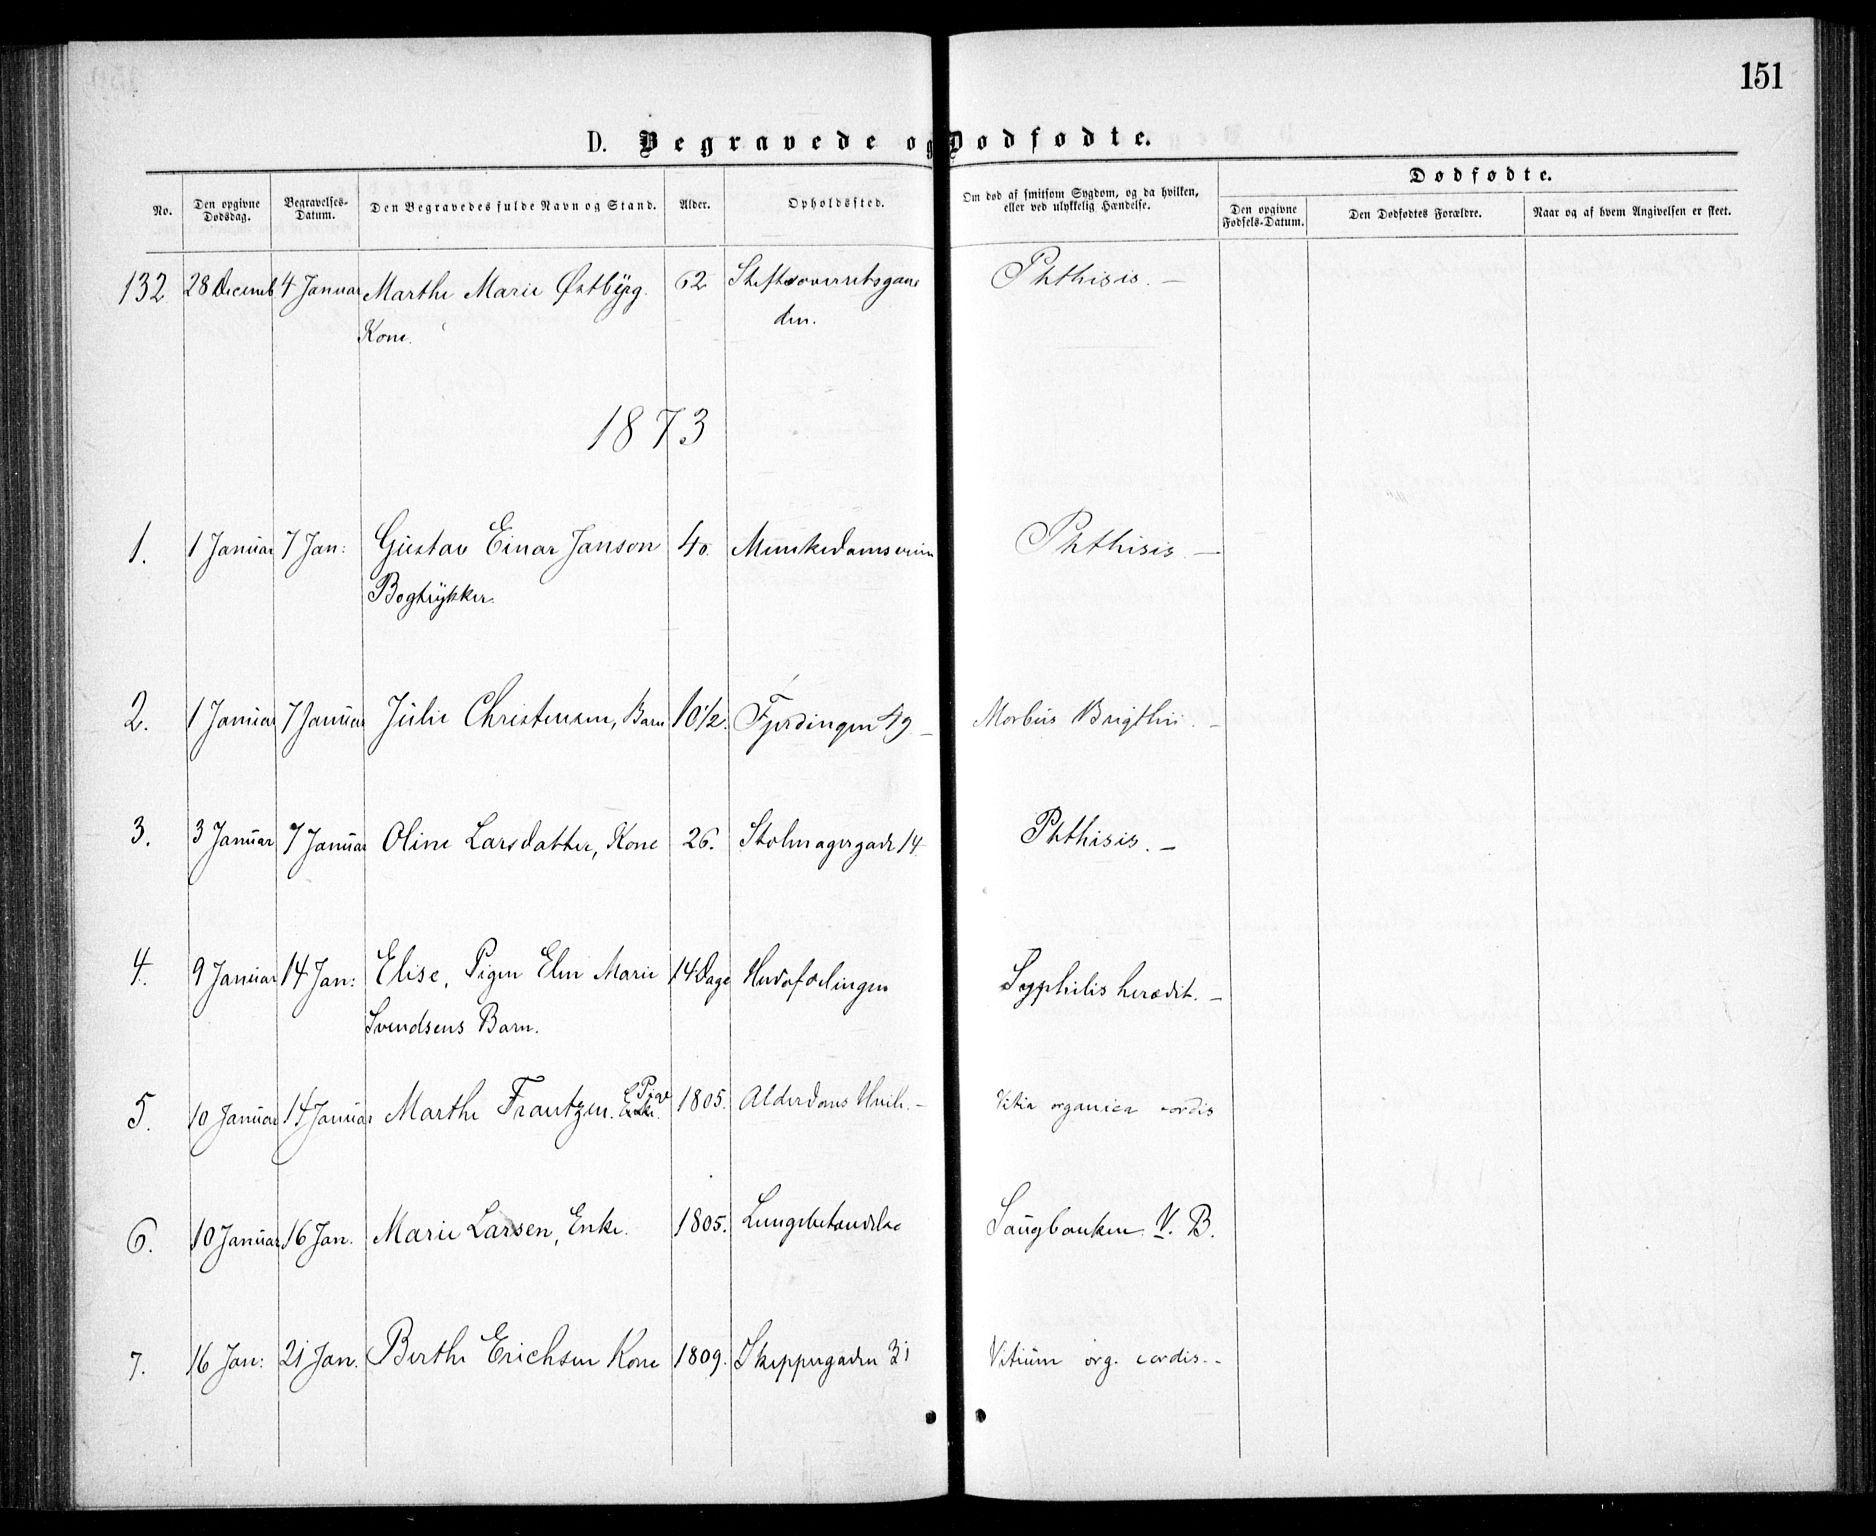 151
D. Begravede og Dødfødte.
No. | Den opgivne Dødsdag. | Begravelses-Datum. | Den Begravedes fulde Navn og Stand. | Alder. | Opholdssted. | Om død af smitsom Sygdom, og da hvilken, eller ved ulykkelig Hændelse. | Dødfødte. | Den opgivne Fødsels-Datum. | Den Dødfødtes Forældre. | Naar og af hvem Angivelsen er skeet.
132. 28 Decemb 4 Januar Marthe Marie Østbyg. 62 Phthisis. —
Kone. den.
1873
1. 1 Januar 7 Jan: Gustav Einar Janson 40. Munkedamsveien Phthisis. —
Bogtrykker.
2. 1 Januar 7 Januar Julie Christensen, Barn 10 1/2. Fjerdingen 49 — Morbus Brigthii. —
3. 3 Januar 7 Januar Oline Larsdatter, Kone 26. Stolmagergade 14. Phthisis. —
4. 9 Januar 14 Jan: Elise, Pigen Elen Marie 14 Dage Syphilis heredit. —
Svendsens Barn.
5. 10 Januar 14 Januar Marthe Frantzen. Pige 1805. Alderdoms Hvile. — Vitia organica cordis
6. 10 Januar 16 Jan. Marie Larsen, Enke. 1805. Lungebetændelse Saugbanken V. B.
7. 16 Jan: 21 Jan. Berthe Erichsen Kone 1809. Skippergaden 31 Vitium org. cordis. -